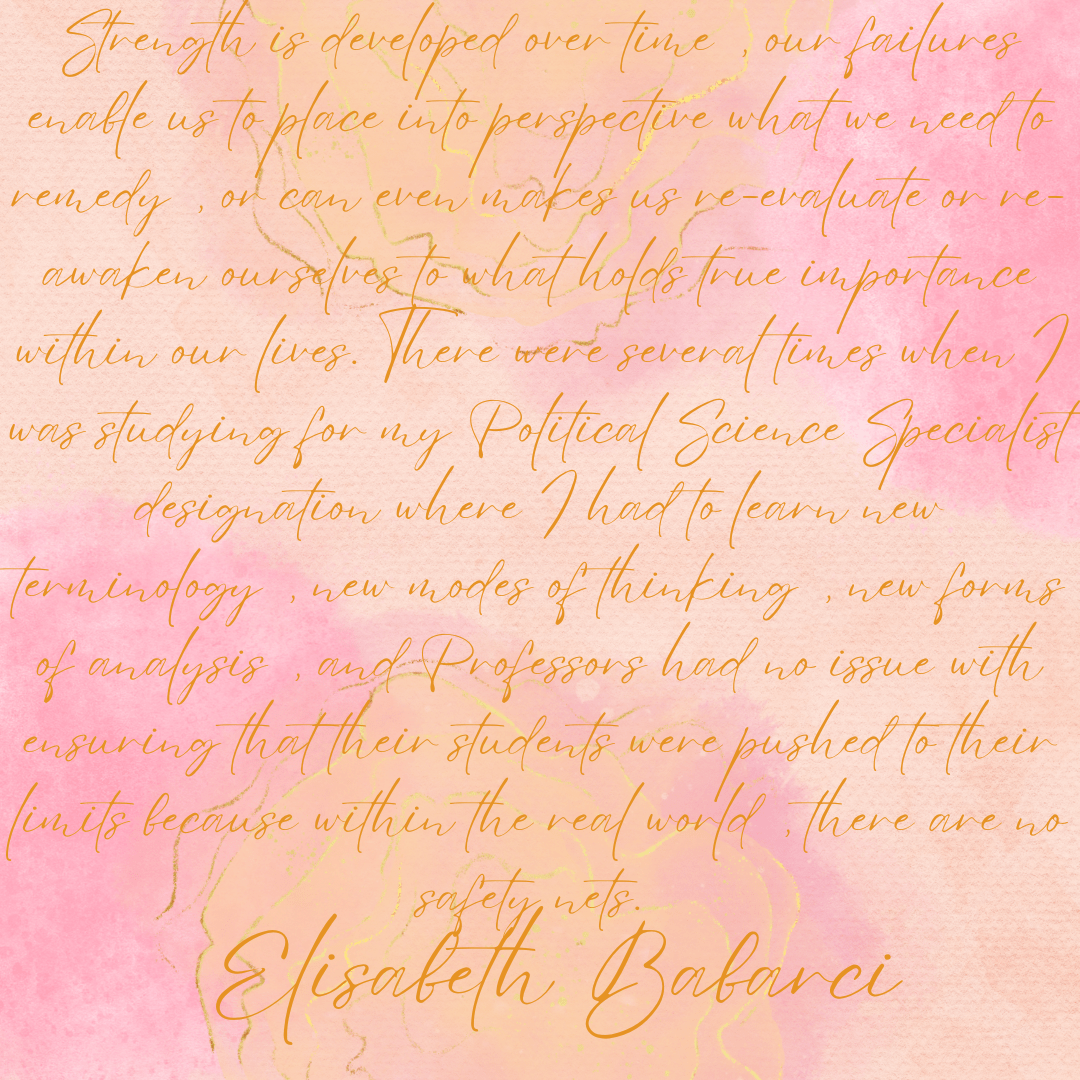 Strength is developed over time , our failures
enable us to place into perspective what we need to
remedy , or can even makes us re-evaluate or re-
awaken ourselves to what holds true importance
within our lives. There were several times when I
was studying for my Political Science Specialist
designation where I had to learn new
terminology , new modes of thinking , new forms
of analysis , and Professors had no issue with
ensuring that their students were pushed to their
limits because within the real world , there are no
safety nets.
Elisabeth Babarci